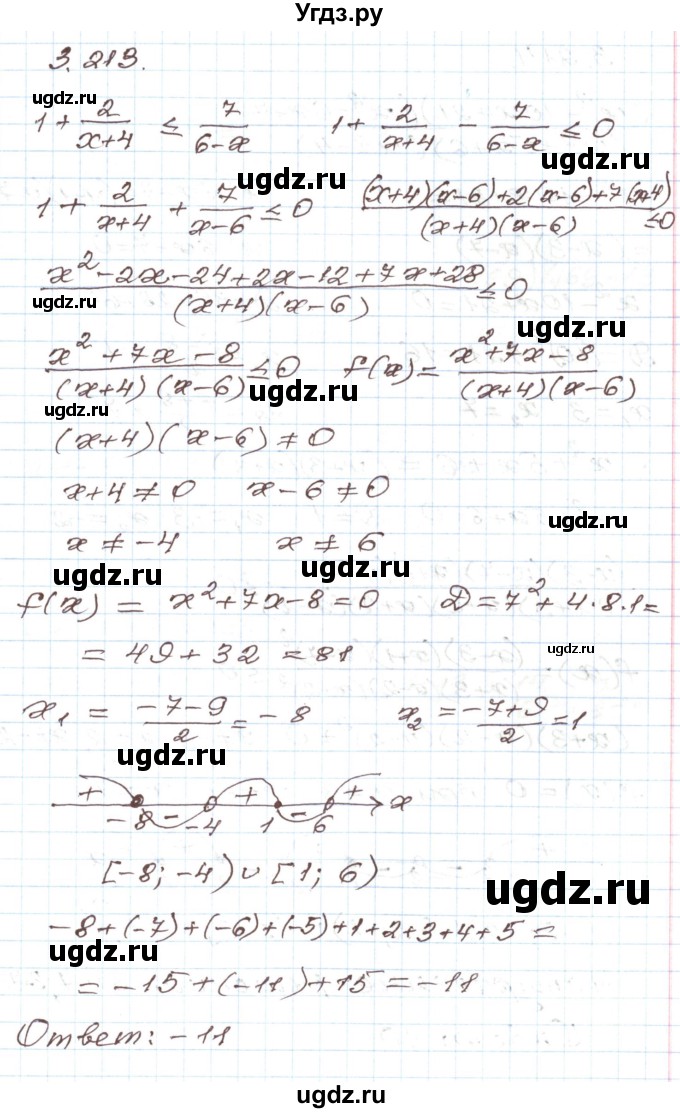 Угдз.ру
3.213.
ugdz.ru
1 + 2/(x+4) ≤ 7/(6-x)     1 + 2/(x+4) - 7/(6-x) ≤ 0
ugdz.ru
ugdz.ru
1 + 2/(x+4) + 7/(x-6) ≤ 0     ((x+4)(x-6)+2(x-6)+7(x+4))/((x+4)(x-6)) ≤ 0
(x²-2x-24+2x-12+7x+28)/((x+4)(x-6)) ≤ 0
ugdz.ru
ugdz.ru
(x²+7x-8)/((x+4)(x-6)) ≤ 0     f(x) = (x²+7x-8)/((x+4)(x-6))
ugdz.ru
ugdz.ru
ugdz.ru
(x+4)(x-6) ≠ 0
x+4 ≠ 0     x-6 ≠ 0
ugdz.ru
x ≠ -4     x ≠ 6
ugdz.ru
ugdz.ru
f(x) = x²+7x-8=0     D = 7²+4·8·1=
= 49+32 = 81
ugdz.ru
x₁ = (-7-9)/2 = -8     x₂ = (-7+9)/2 = 1
ugdz.ru
ugdz.ru
+ - + - + x
-8 -4 1 6
[-8; -4) ∪ [1; 6)
ugdz.ru
-8+(-7)+(-6)+(-5)+1+2+3+4+5=
ugdz.ru
= -15+(-11)+15=-11
Ответ: -11
ugdz.ru
ugdz.ru